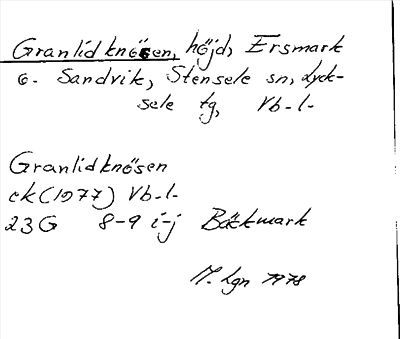 Granlidknösen, höjd, Ersmark
o. Sandvik, Stensele sn, Lyck-
sele tg, Vb-l-
Granlidknösen
ek (1977) Vb-l-
23G 8-9 i-j Bäckmark
M. Lgn 1978